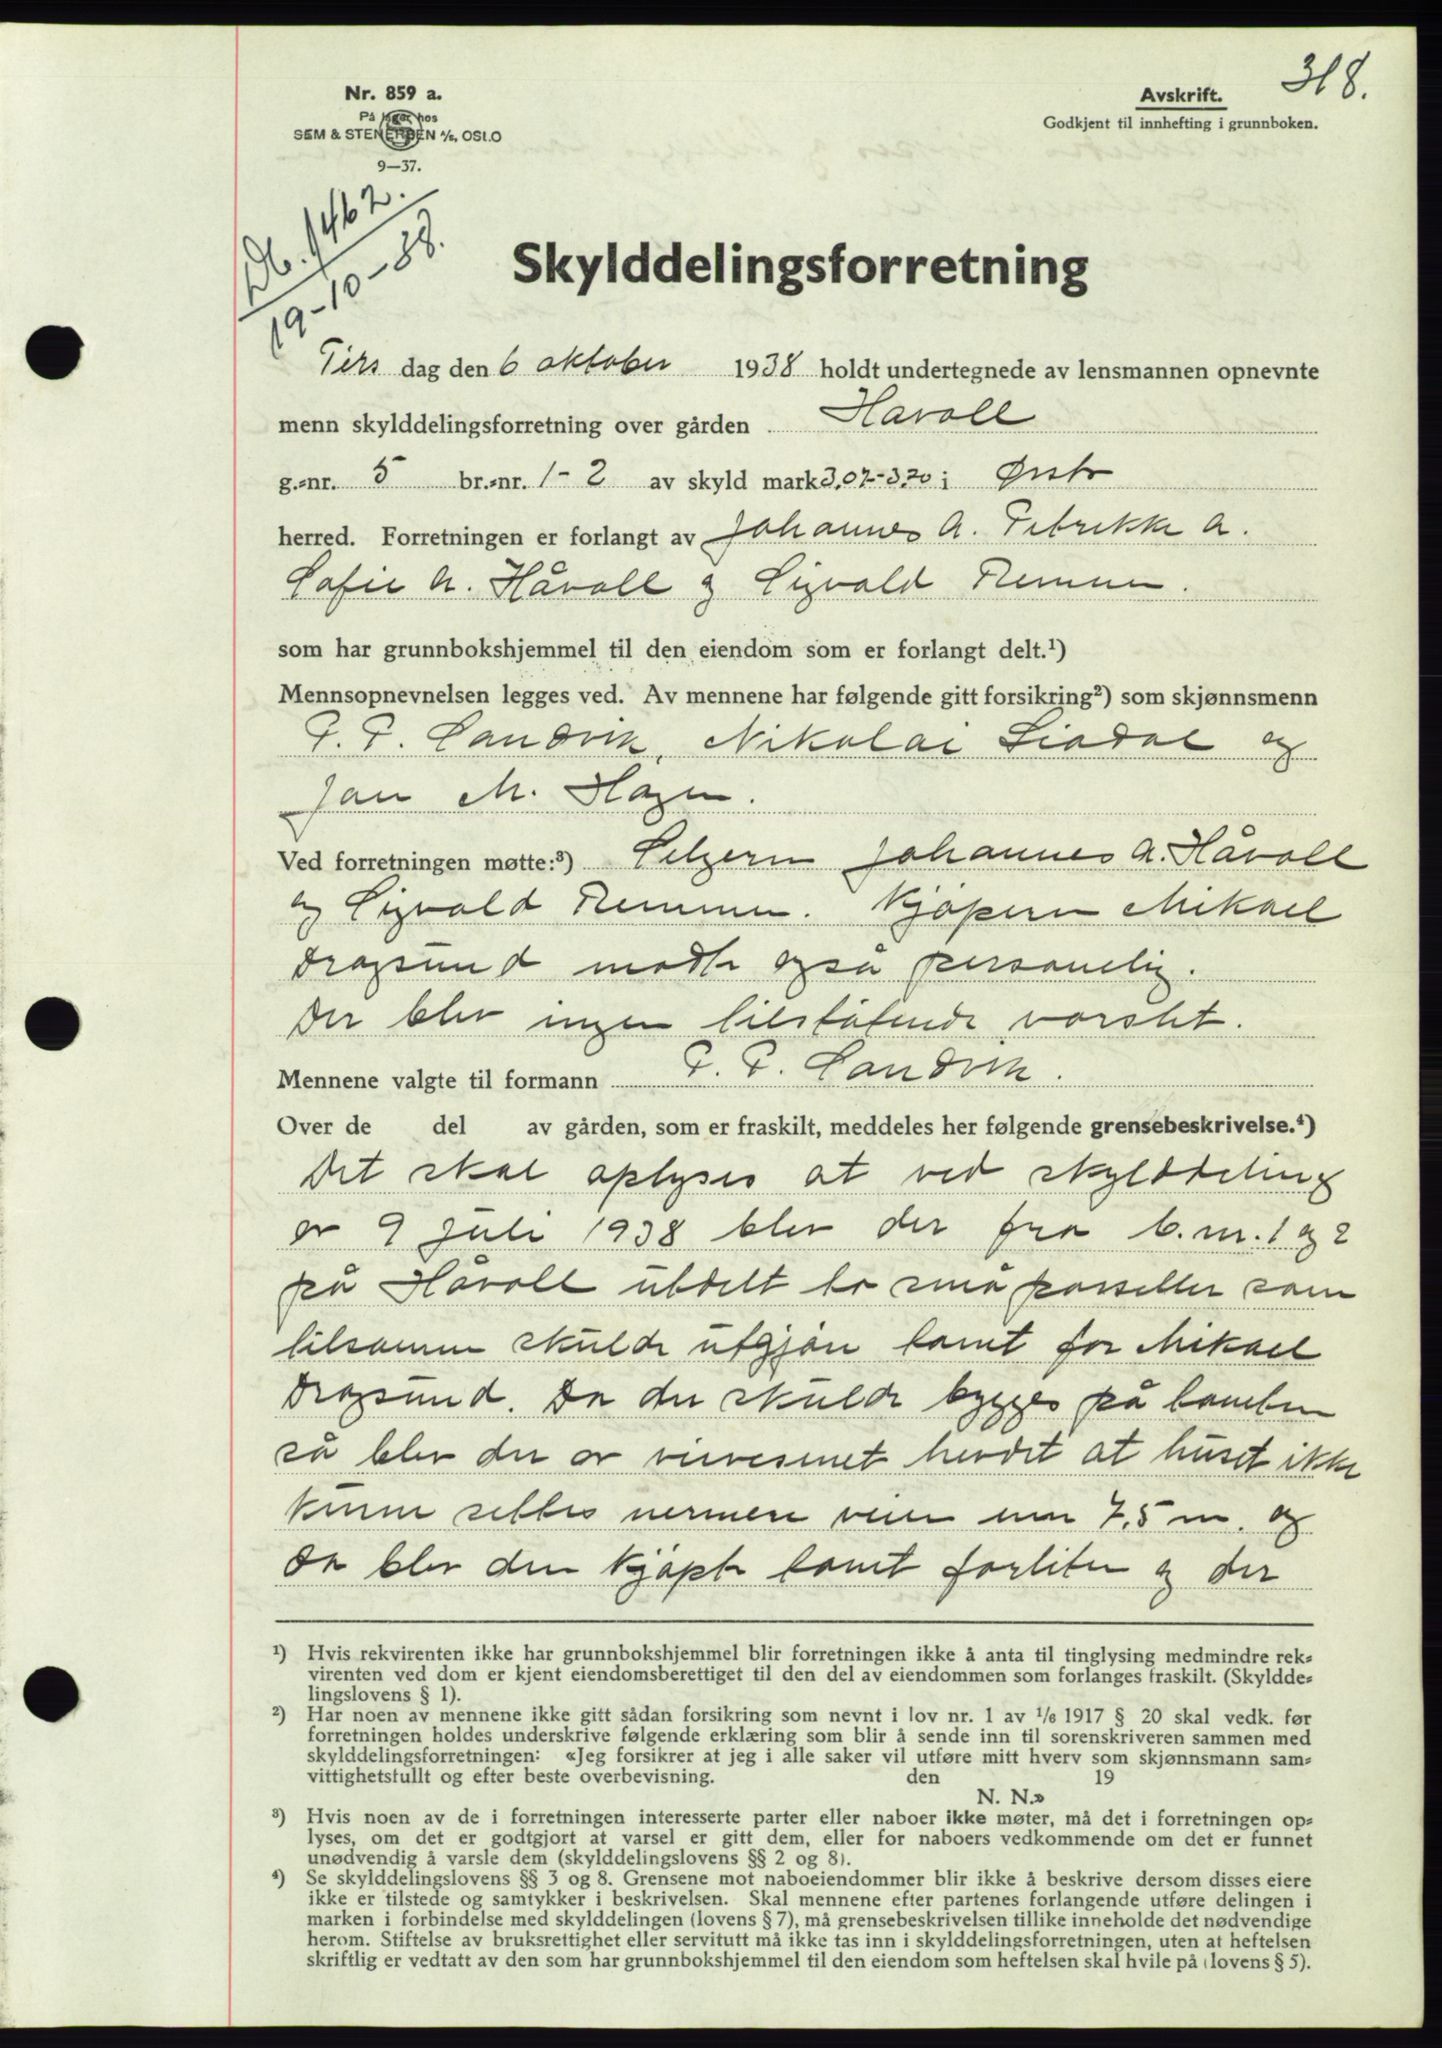 318.
Nr. 859 a.
På lager hos
SEM & STENERSEN A/S, OSLO
9—37.
Avskrift.
Godkjent til innhefting i grunnboken.
Db. 1462.
19-10-38.
Skylddelingsforretning
Tirs dag den 6 oktober 1938 holdt undertegnede av lensmannen opnevnte
menn skylddelingsforretning over gården Håvoll
g.-nr. 5 br.-nr. 1-2 av skyld mark 3,07-3,70 i Ørsta
herred. Forretningen er forlangt av Johannes A. Petrikke A.
Sofie A. Håvoll og Sigvald Remmen.
som har grunnbokshjemmel til den eiendom som er forlangt delt.¹)
Mennsopnevnelsen legges ved. Av mennene har følgende gitt forsikring²) som skjønnsmenn
P. P. Sandvik, Nikolai Liadal og
Jan M. Hagen.
Ved forretningen møtte:³) Selgern Johannes A. Håvoll
og Sigvald Remmen. Kjøpern Mikael
Dragsund møtte også personelig.
Der blev ingen tilstøtende varslet.
Mennene valgte til formann P. P. Sandvik.
Over de del av gården, som er fraskilt, meddeles her følgende grensebeskrivelse.⁴)
Det skal oplyses at ved skylddeling
av 9 juli 1938 blev der fra b.nr. 1 og 2
på Håvoll utdelt to små parseller som
tilsamen skulde utgjøre tomt for Mikael
Dragsund. Da der skulde bygges på tomten
så blev der av veivesenet hevdet at huset ikke
kunne settes nermere veien enn 7,5 m. og
da blev den kjøpte tomt forliten og der
¹) Hvis rekvirenten ikke har grunnbokshjemmel blir forretningen ikke å anta til tinglysing medmindre rek-
virenten ved dom er kjent eiendomsberettiget til den del av eiendommen som forlanges fraskilt. (Skyldde-
lingslovens § 1).
²) Har noen av mennene ikke gitt sådan forsikring som nevnt i lov nr. 1 av 1/6 1917 § 20 skal vedk. før
forretningen holdes underskrive følgende erklæring som blir å sende inn til sorenskriveren sammen med
skylddelingsforretningen: «Jeg forsikrer at jeg i alle saker vil utføre mitt hverv som skjønnsmann sam-
vittighetsfullt og efter beste overbevisning. den 19
N. N.»
³) Hvis noen av de i forretningen interesserte parter eller naboer ikke møter, må det i forretningen op-
lyses, om det er godtgjort at varsel er gitt dem, eller for naboers vedkommende om det er funnet
unødvendig å varsle dem (skylddelingslovens §§ 2 og 8).
⁴) Se skylddelingslovens §§ 3 og 8. Grensene mot naboeiendommer blir ikke å beskrive dersom disses eiere
ikke er tilstede og samtykker i beskrivelsen. Skal mennene efter partenes forlangende utføre delingen i
marken i forbindelse med skylddelingen (lovens § 7), må grensebeskrivelsen tillike inneholde det nødvendige
herom. Stiftelse av bruksrettighet eller servitutt må ikke tas inn i skylddelingsforretningen, uten at heftelsen
skriftlig er vedtatt av den som har grunnbokshjemmel til den eiendom som heftelsen skal hvile på (lovens § 5).